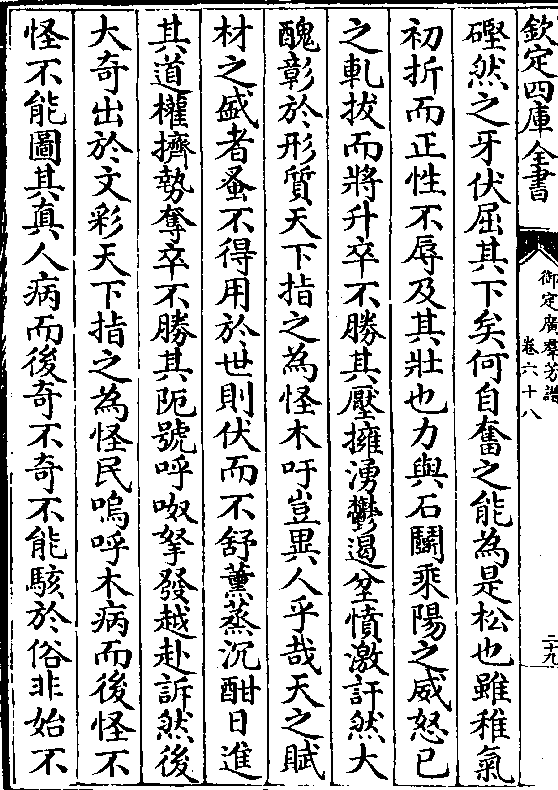 欽定四庫全書
御定廣羣芳譜
卷六十八
二十九
磴然之牙伏屈其下矣何自奮之能為是松也雖稚氣
初折而正性不辱及其壯也力與石鬬乘陽之威怒已
之軋拔而將升卒不勝其壓擁湧鬱遏坌憤激訐然大
醜彰於形質天下指之為怪木吁豈異人乎哉天之賦
材之盛者蚤不得用於世則伏而不舒薰蒸沉酣日進
其道權擠勢奪卒不勝其阨號呼呶拏發越赴訴然後
大奇出於文彩天下指之為怪民嗚呼木病而後怪不
怪不能圖其真人病而後奇不奇不能駭於俗非始不